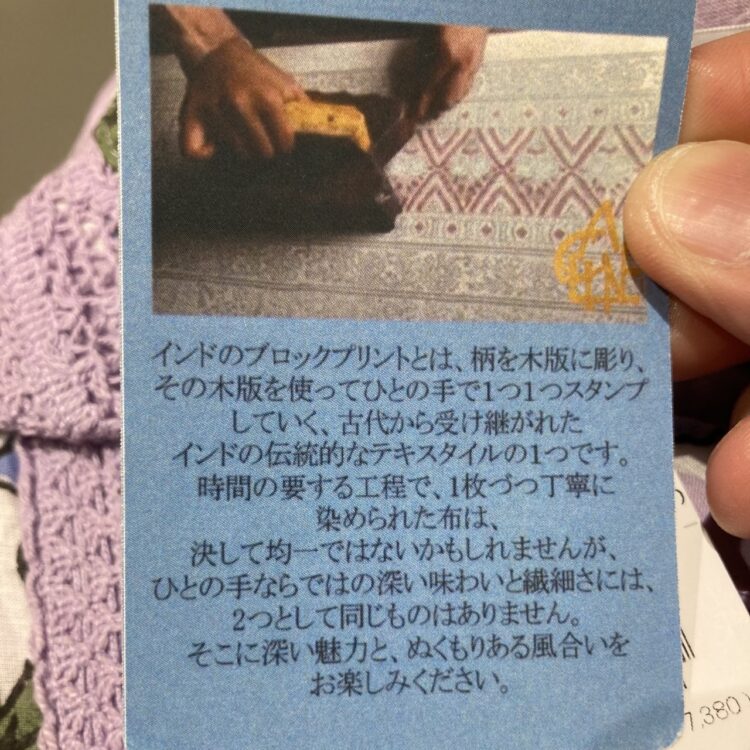 インドのブロックプリントとは、柄を木版に彫り、
その木版を使ってひとの手で1つ1つスタンプ
していく、古代から受け継がれた
インドの伝統的なテキスタイルの1つです。
時間の要する工程で、1枚づつ丁寧に
染められた布は、
決して均一ではないかもしれませんが、
ひとの手ならではの深い味わいと繊細さには、
2つとして同じものはありません。
そこに深い魅力と、ぬくもりある風合いを
お楽しみください。
7,380